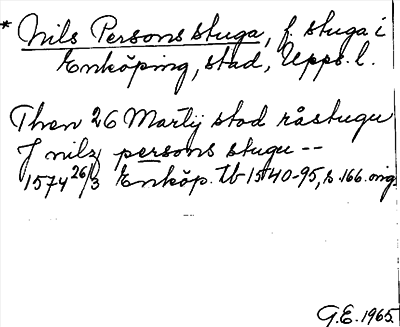 * Nils Persons stuga, f. stuga i
Enköping, stad, Upps. l.
Then 26 Martij stod råstugu
J nilz persons stugu --
1574 26/3 Enköp. tb 1540-95, s. 166. orig.
G.E. 1965.